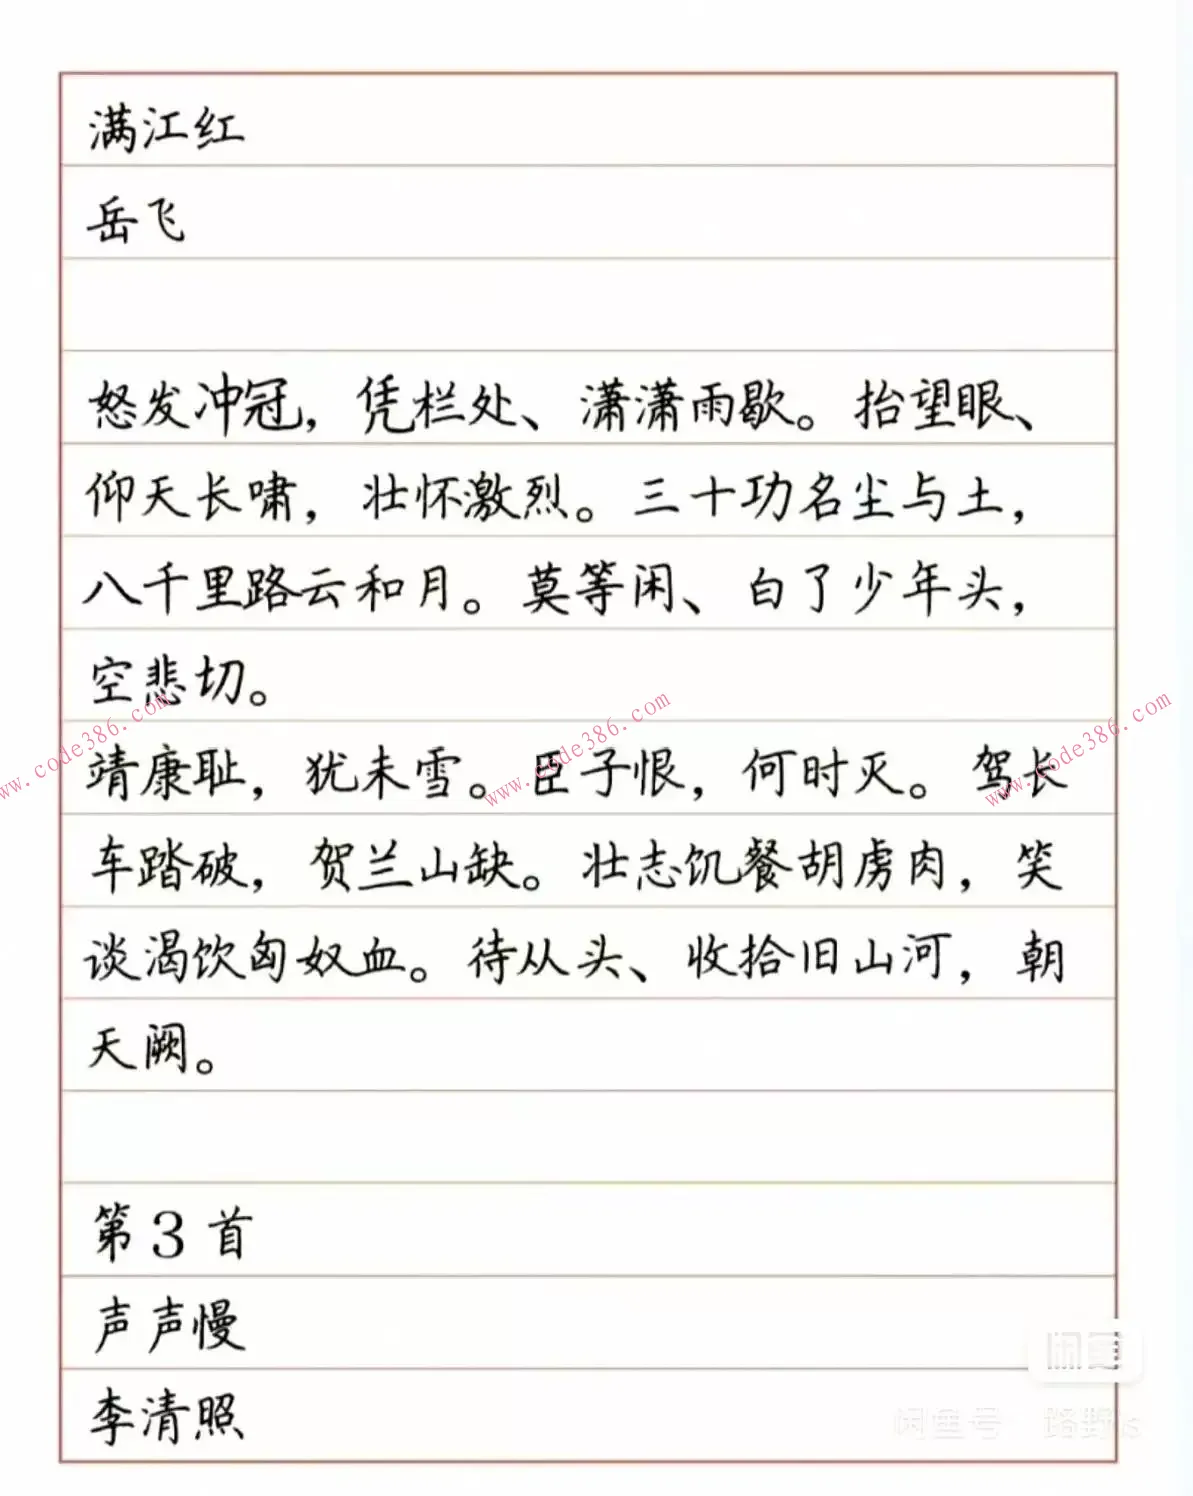 满江红
岳飞
怒发冲冠，凭栏处、潇潇雨歇。抬望眼、
仰天长啸，壮怀激烈。三十功名尘与土，
八千里路云和月。莫等闲、白了少年头，
空悲切。
靖康耻，犹未雪。臣子恨，何时灭。驾长
车踏破，贺兰山缺。壮志饥餐胡虏肉，笑
谈渴饮匈奴血。待从头、收拾旧山河，朝
天阙。
第3首
声声慢
李清照
www.code386.com
www.code386.com
www.code386.com
闲鱼号 路野is